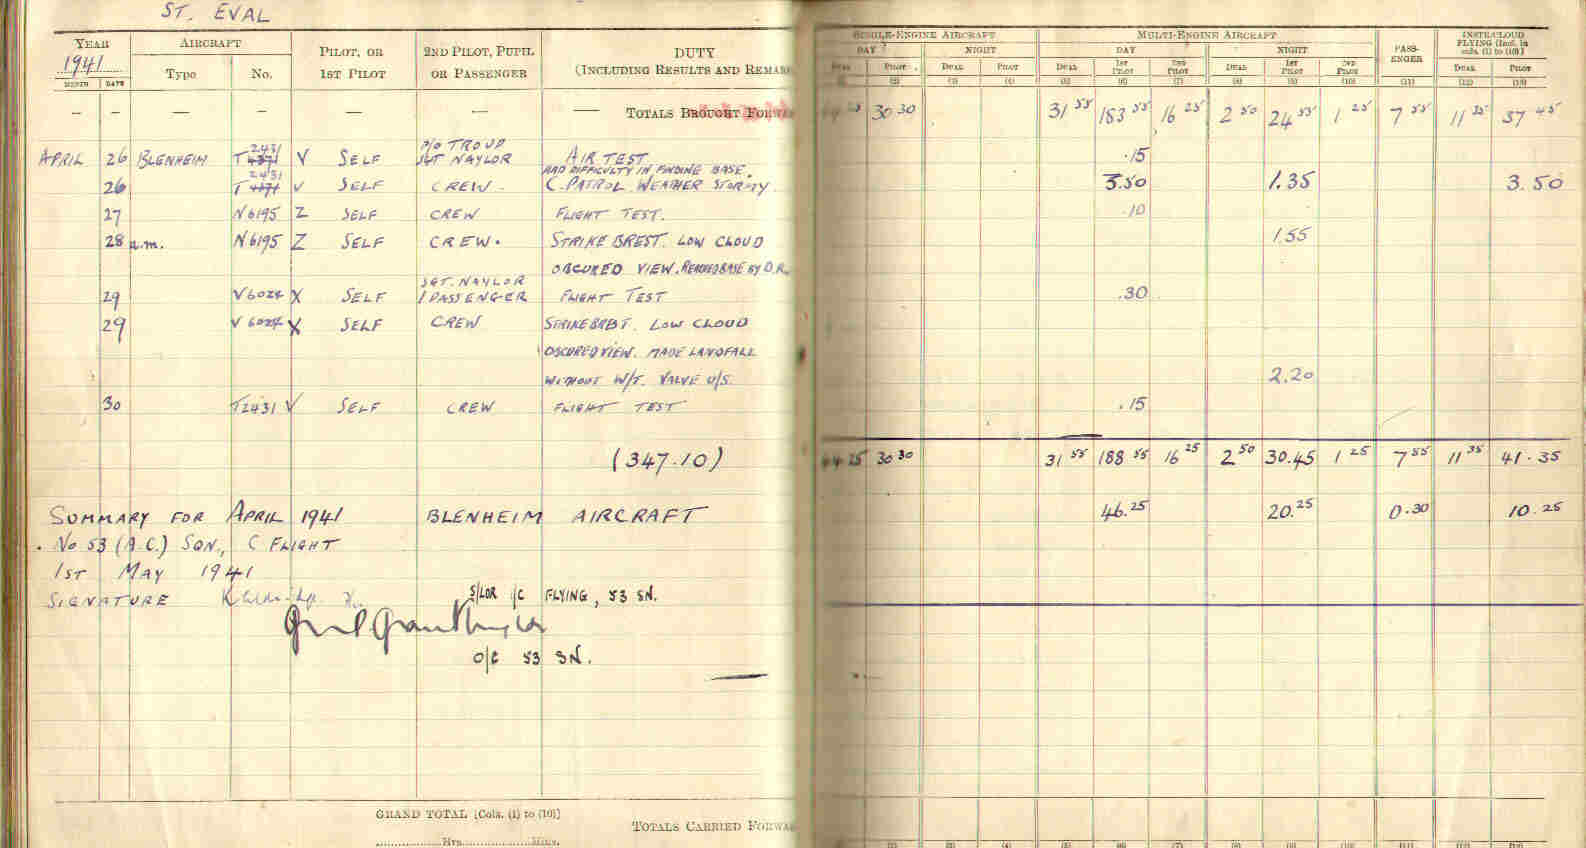 ST. EVAL
YEAR AIRCRAFT PILOT, OR 2ND PILOT, PUPIL DUTY SINGLE-ENGINE AIRCRAFT MULTI-ENGINE AIRCRAFT PASS- INSTR/CLOUD
1941 Type No. 1ST PILOT OR PASSENGER (INCLUDING RESULTS AND REMAR DAY NIGHT DAY NIGHT ENGER FLYING [Incl. in
cols. (1) to (10)]
MONTH DATE DUAL PILOT DUAL PILOT DUAL 1ST PILOT 2ND PILOT DUAL 1ST PILOT 2ND PILOT DUAL PILOT
(2) (3) (4) (5) (6) (7) (8) (9) (10) (11) (12) (13)
— — — — — — — TOTALS BROUGHT FORWA 25 30 30 31 55 183 55 16 25 2 50 24 55 1 25 7 55 11 35 37 45
2431 P/O TROUP
APRIL 26 BLENHEIM T 4371 V SELF SGT NAYLOR AIR TEST .15
2431 HAD DIFFICULTY IN FINDING BASE.
26 T 4371 V SELF CREW C. PATROL WEATHER STORMY. 3.50 1.35 3.50
27 N6195 Z SELF CREW FLIGHT TEST. .10
28 a.m. N6195 Z SELF CREW. STRIKE BREST. LOW CLOUD 1.55
OBSCURED VIEW. REACHED BASE BY D.R.
SGT. NAYLOR
29 V6024 X SELF 1 PASSENGER FLIGHT TEST .30
29 V 6024 X SELF CREW STRIKE BREST. LOW CLOUD
OBSCURED VIEW. MADE LANDFALL
WITHOUT W/T. VALVE U/S. 2.20
30 T2431 V SELF CREW FLIGHT TEST .15
(347.10) 44 25 30 30 31 55 188 55 16 25 2 50 30.45 1 25 7 55 11 35 41.35
SUMMARY FOR APRIL 1941 BLENHEIM AIRCRAFT 46.25 20.25 0.30 10.25
No 53 (A.C.) SQN., C FLIGHT
1ST MAY 1941
SIGNATURE S/LDR i/c FLYING, 53 SN.
O/C 53 SN.
GRAND TOTAL [Cols. (1) to (10)]
Hrs. Mins.
TOTALS CARRIED FORWA